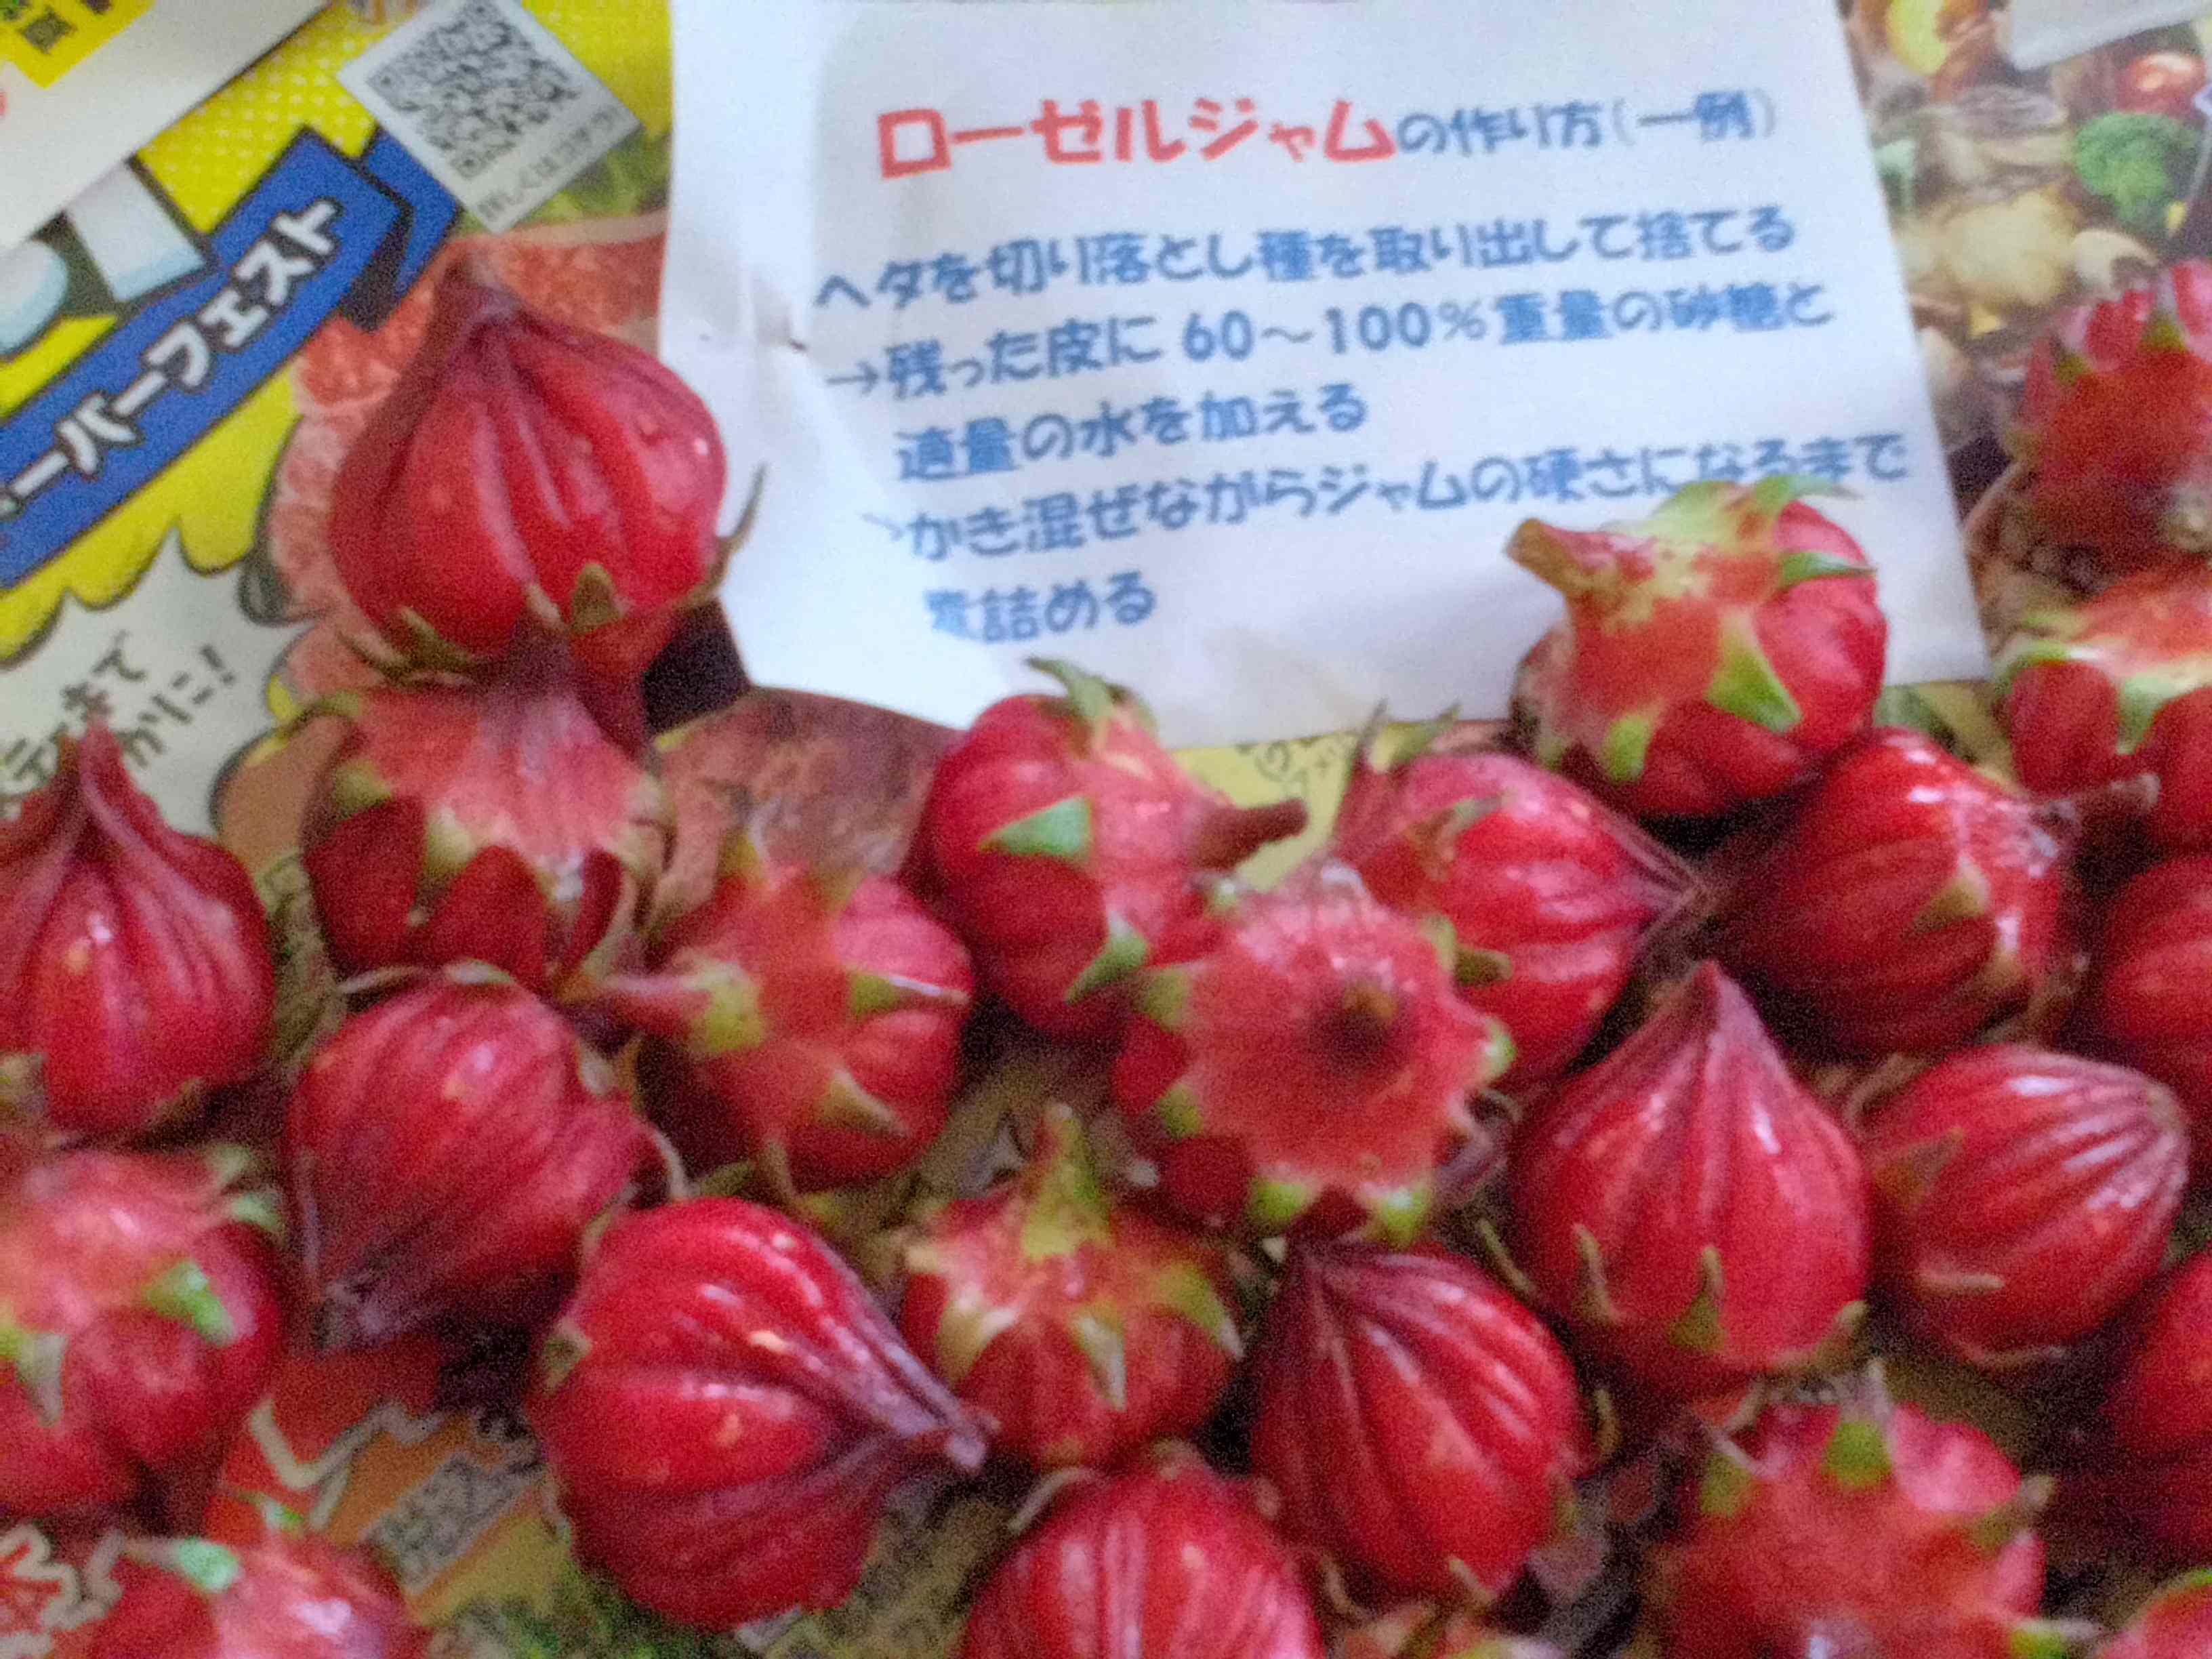 ローゼルジャムの作り方(一例)
ヘタを切り落とし種を取り出して捨てる
→残った皮に 60～100%重量の砂糖と
適量の水を加える
→かき混ぜながらジャムの硬さになるまで
煮詰める
詳しくはコチラ
ーパーフェスト